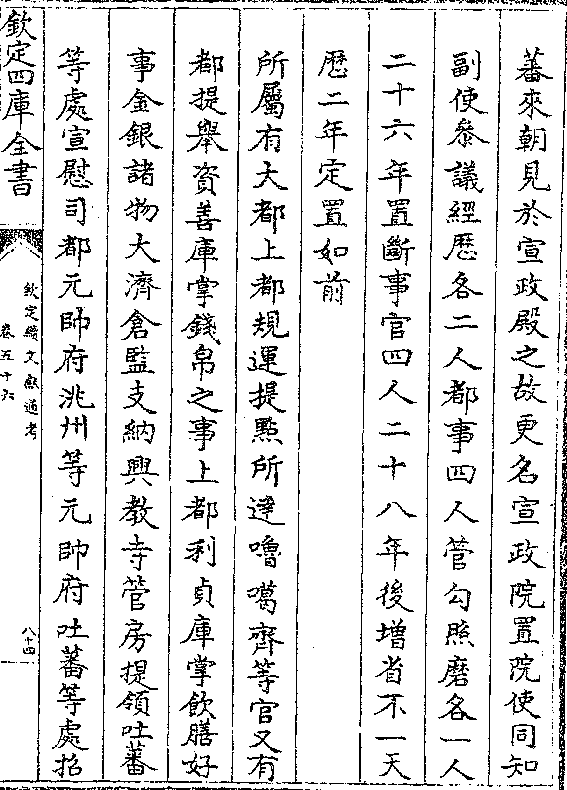 蕃來朝見於宣政殿之故更名宣政院置院使同知
副使叅議經歴各二人都事四人管勾照磨各一人
二十六年置斷事官四人二十八年後增省不一天
歴二年定置如前
所屬有大都上都規運提點所達嚕噶齊等官又有
都提舉資善庫掌錢帛之事上都利貞庫掌飲膳好
事金銀諸物大濟倉監支納興教寺管房提領吐蕃
等處宣慰司都元帥府洮州等元帥府吐蕃等處招
欽定四庫全書
欽定續文獻通考
卷五十六
八十四